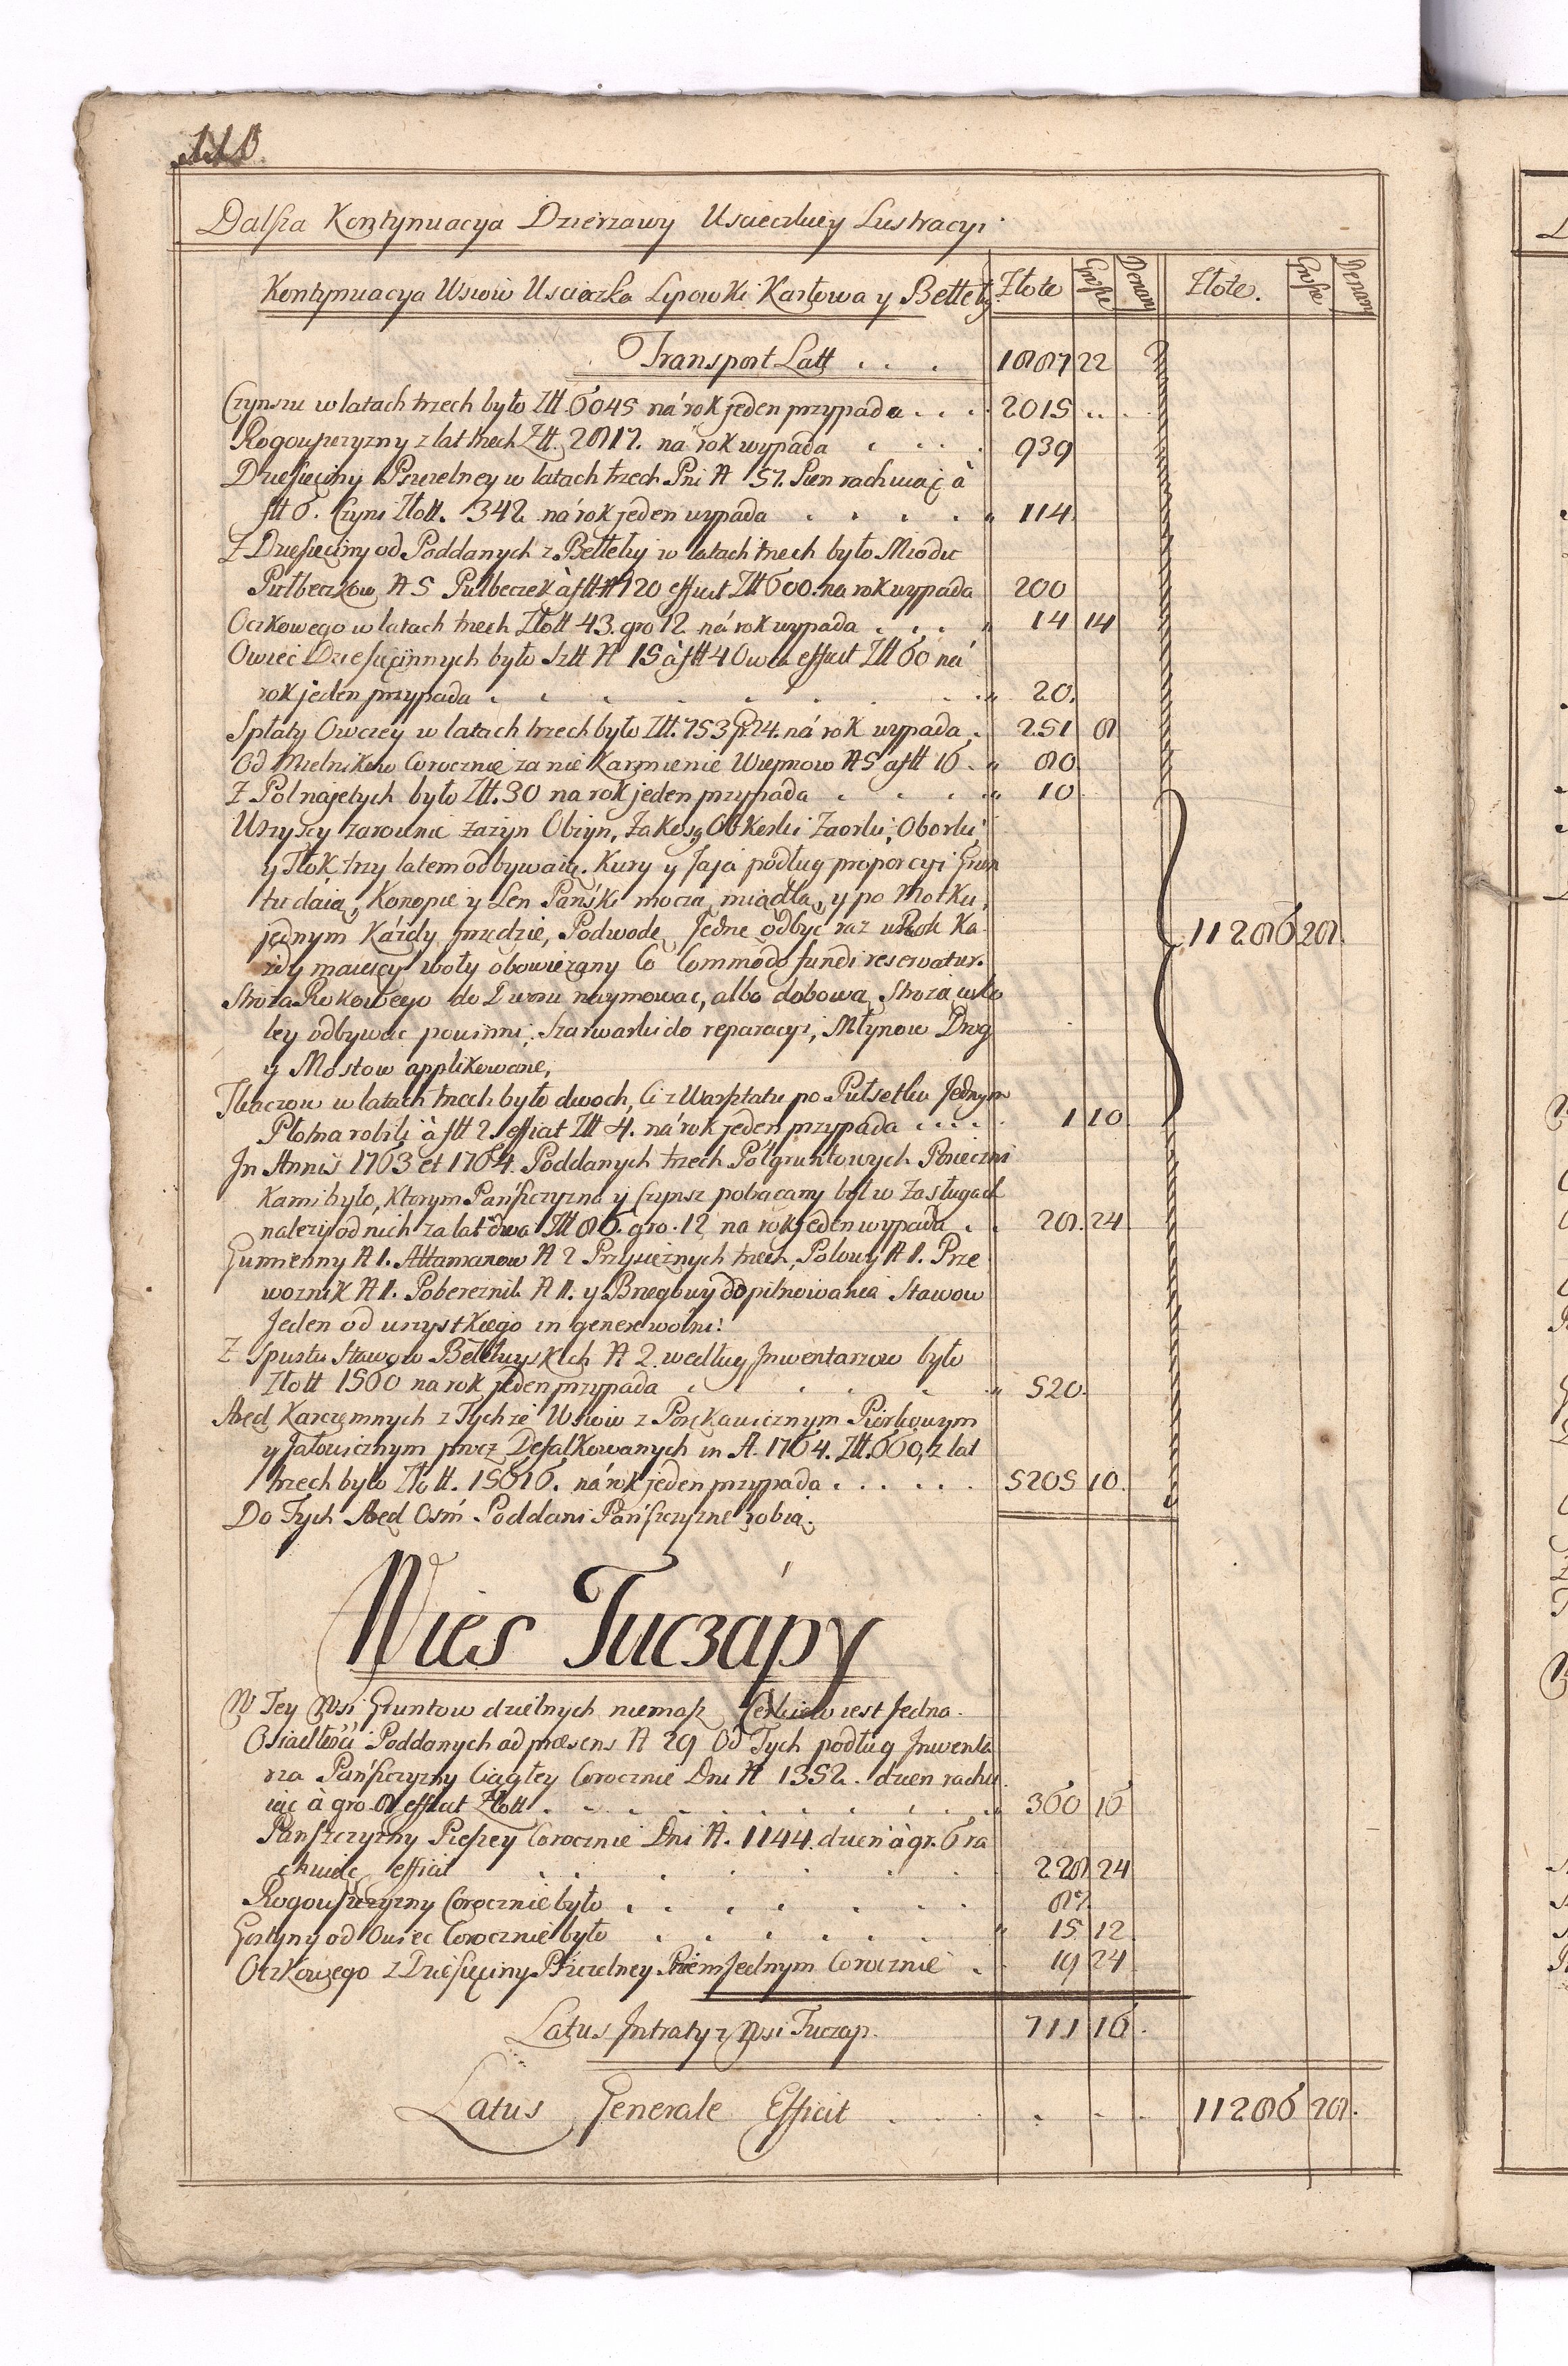 118.
Dalsza Kontynuacya Dzierzawy Uscieczkiey Lustracyi
Kontynuacya Wsiow Usciaczka Lipowki Karłowa y Bełłełuy. Złote Grosze Denary Złote. Grosze Denary
Transport Latt . . . 1887 22
Czynszu w latach trzech było Ztt. 6045 ná rok jeden przypada . . . 2015
Rogowszczyzny z lat trzech Ztt. 2817. na rok wypada 939
Dziesięciny Pszczelney w latach trzech Pni N 57. Pien rachuiąc à
ftt 6. Czyni Złott. 342 ná rok jeden wypada . . . . 114
Z Dziesięciny od Poddanych z Bełłełuy w latach trzech było Miodu
Pułbeczkow N 5 Pułbeczek à ftt N 120 efficit Ztt 600. na rok wypada 200
Oczkowego w latach trzech Złott 43. gro 12. ná rok wypada . . . . 14 14
Owiec Dziesięcinnych było Sztt N 15 à ftt 4 Owca efficit Ztt 60 ná
rok jeden przypada . . . . . . 20.
Spłaty Owczey w latach trzech było Ztt. 753 gr 24. ná rok wypada . 251 8
Od Mielnikow Corocznie za nie Karmienie Wieprzow N 5 à ftt 16 . 80
Z Pol najętych było Ztt. 30 na rok jeden przypada . . . . 10
Wszyscy zarowno zażyn Obżyn, Zakosy, Obkoski Zaorki, Oborki,
y Tłok trzy latem odbywaią. Kury y Jaja podług proporcyi Grun
tu dáią, Konopie y Len Pański moczą, miądlą, y po Motku,
jednym Każdy przędzie, Podwodę Jedne odbyć raz w Rok Ka
żdy maiący woły obowiązany Co Commodo fundi reservatur.
Stroża Rokowego do Dworu naymować, albo dobową Strożą w ko
ley odbywać powinni, Szarwarki do reparacyi, Młynow Drog
y Mostow applikowane,
Tkaczow w latach trzech było dwoch, Ci z Warsztatu po Pułsetku Jednym
Płotna robili à ftt 2. efficit Ztt 4. ná rok jeden przypada . . . . 1 10.
In Annis 1763 et 1764. Poddanych trzech Półgruntowych
Kami było, Ktorym Pańszczyzna y Czynsz potrącany był w Zasługach
należy od nich za lat dwa Ztt 86. gro. 12 na rok jeden wypada . . 28. 24
Gumienny N 1. Attamanow N 2 Przysiężnych trzech, Polowy N 1. Prze
woznik N 1. Pobereznik N 1. y Bregowy do pilnowania Stawow
Jeden od wszystkiego in genere wolni.
Z Spustu Stawow Bełłełuyskich N 2. według Inwentarzow było
Złott 1560 na rok jeden przypada . . . . 520.
Aręd Karczemnych z Tychże Wsiow z Porękawicznym Piorkowym
y Jałowicznym prócz Defalkowanych in A. 1764. Ztt. 660, z lat
trzech było Złott. 15616. ná rok jeden przypada . . . . . 5205 10.
Do Tych Aręd Osm Poddani Pańszczyznę robią.
11286 28.
Wies Tuczápy
W Tey Wsi Gruntow dzielnych niemasz Cerkiew iest Jedna.
Osiadłości Poddanych ad præsens N 29 Od Tych podług Inwenta
rza Pańszczyzny Ciągłey Corocznie Dni N 1352. dzien rachu
iąc à gro. 8 efficit Złott . . . . . . . 360 16
Panszczyzny Pieszey Corocznie Dni N. 1144. dzień à gr. 6 ra
chuiąc efficit . . . . . . 228 24
Rogowszczyzny Corocznie było . . . . . . 87.
Gostyny od Owiec Corocznie było . . . . . . 15 12
Oczkowego z Dziesięciny Pszczelney Pniem Jednym Corocznie . 19 24
Latus Intraty z Wsi Tuczap. 711 16.
Latus Generale Efficit . . . . . . 11286 28.